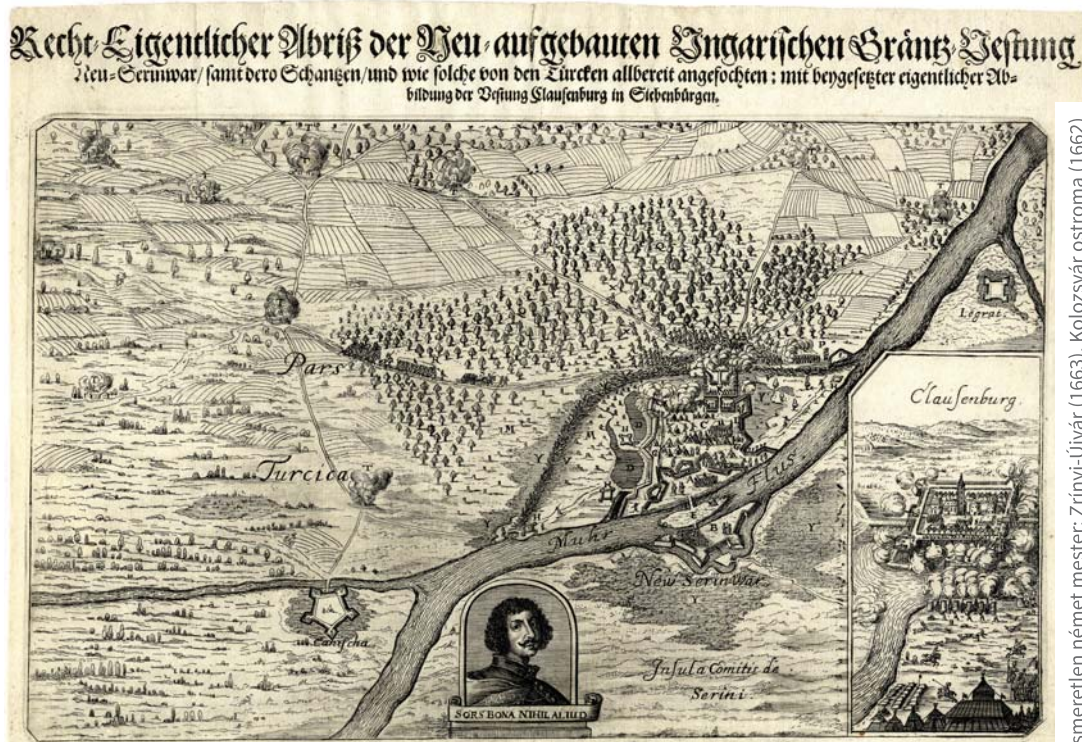 Recht-Eigentlicher Abriß der Neu-aufgebauten Ungarischen Gräntz-Vestung
Neu-Serinwar/ samt dero Schantzen/ und wie solche von den Türcken allbereit angefochten: mit beygesetzter eigentlicher Ab-
bildung der Vestung Clausenburg in Siebenbürgen.
Legrat.
Pars
Clausenburg.
Turcica
Flus
Muhr
New Serinwar
Canischa
Insula Comitis de
Serini.
SORS BONA NIHIL ALIUD
Ismeretlen német mester: Zrínyi-Újvár (1663), Kolozsvár ostroma (1662)